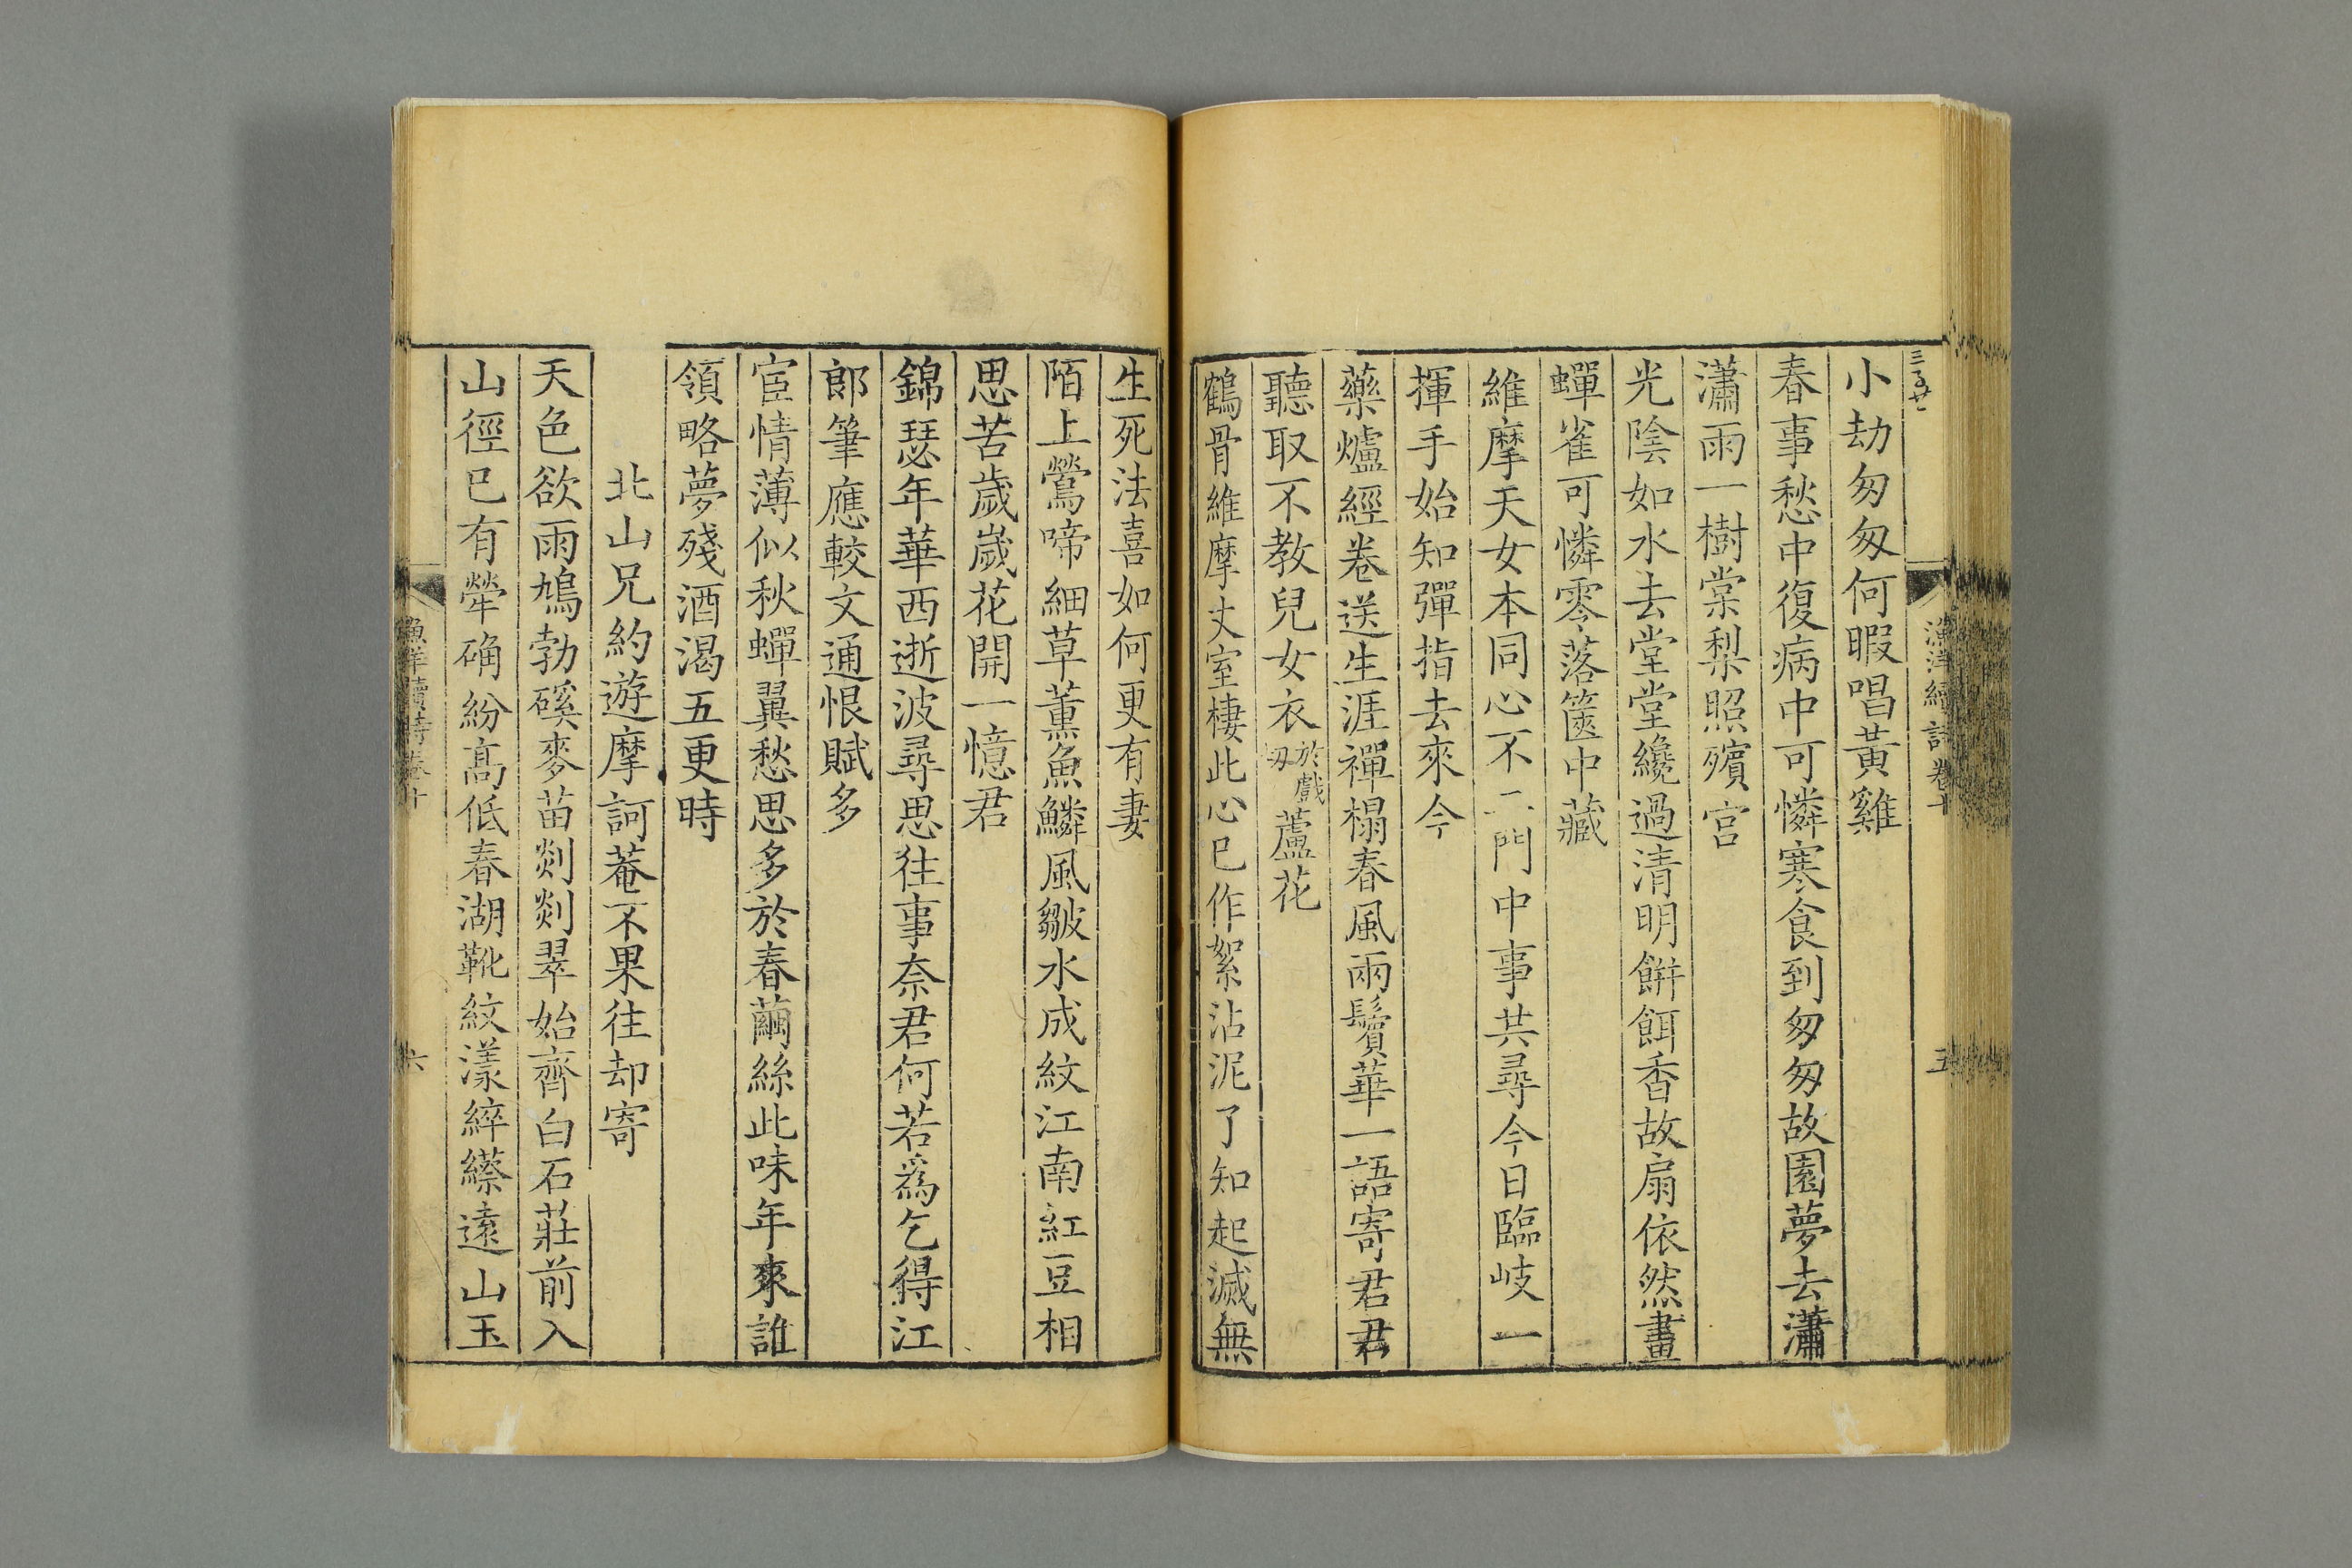 漁洋續詩卷十
五
小劫匆匆何暇唱黃雞
春事愁中復病中可憐寒食到匆匆故園夢去瀟
瀟雨一樹棠梨照殯宮
光陰如水去堂堂纔過清明餠餌香故扇依然畫
蟬雀可憐零落篋中藏
維摩天女本同心不二門中事共尋今日臨岐一
揮手始知彈指去來今
藥爐經卷送生涯禪榻春風兩鬢華一語寄君君
聽取不教兒女衣於戲切蘆花
鶴骨維摩丈室棲此心已作絮沾泥了知起滅無
生死法喜如何更有妻
陌上鶯啼細草薰魚鱗風皺水成紋江南紅豆相
思苦歲歲花開一憶君
錦瑟年華西逝波尋思往事奈君何若爲乞得江
郎筆應較文通恨賦多
宦情薄似秋蟬翼愁思多於春繭絲此味年來誰
領略夢殘酒渴五更時
北山兄約遊摩訶菴不果往却寄
天色欲雨鳩勃磎麥苗剡剡翠始齊白石莊前入
山徑已有犖确紛高低春湖靴紋漾縩遠山玉
漁洋續詩卷十
六